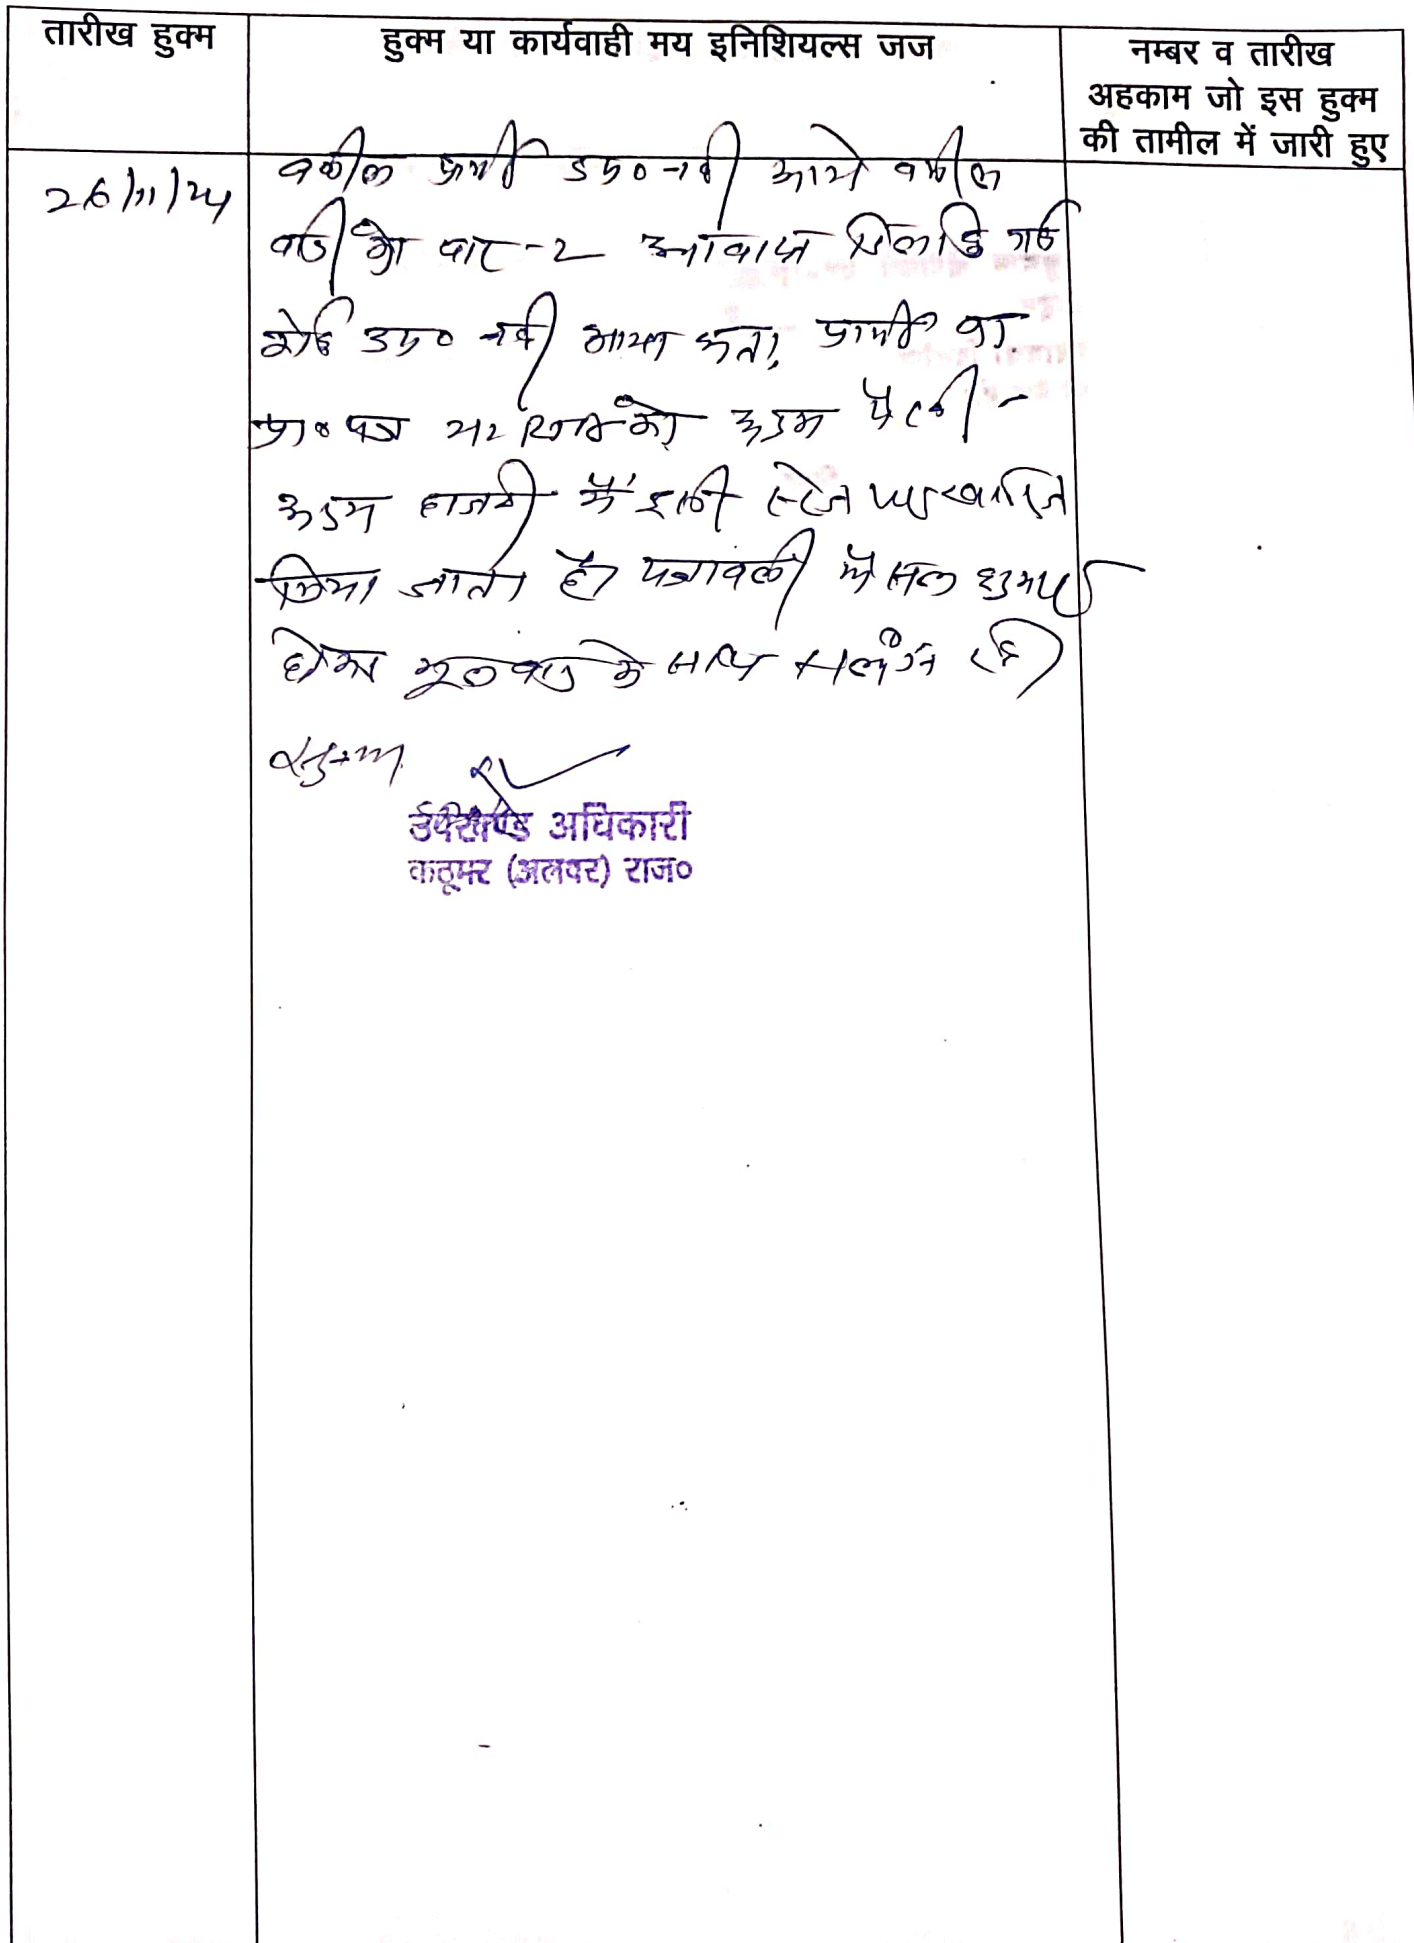 तारीख हुक्म
हुक्म या कार्यवाही मय इनिशियल्स जज
नम्बर व तारीख
अहकाम जो इस हुक्म
की तामील में जारी हुए
26/11/24
वकील प्रार्थी उप० नही आये वकील
वादी को बार-2 आवाज दिलाई गई
कोई उप० नही आया अतः प्रार्थी का
प्रा० पत्र को अदम पैरवी -
अदम हाजरी में इसी स्टेज पर खारिज
किया जाता है। पत्रावली फैसल शुमार
होकर मूल वाद के साथ सलंग्न रहे।
उपखण्ड अधिकारी
कठूमर (अलवर) राज०